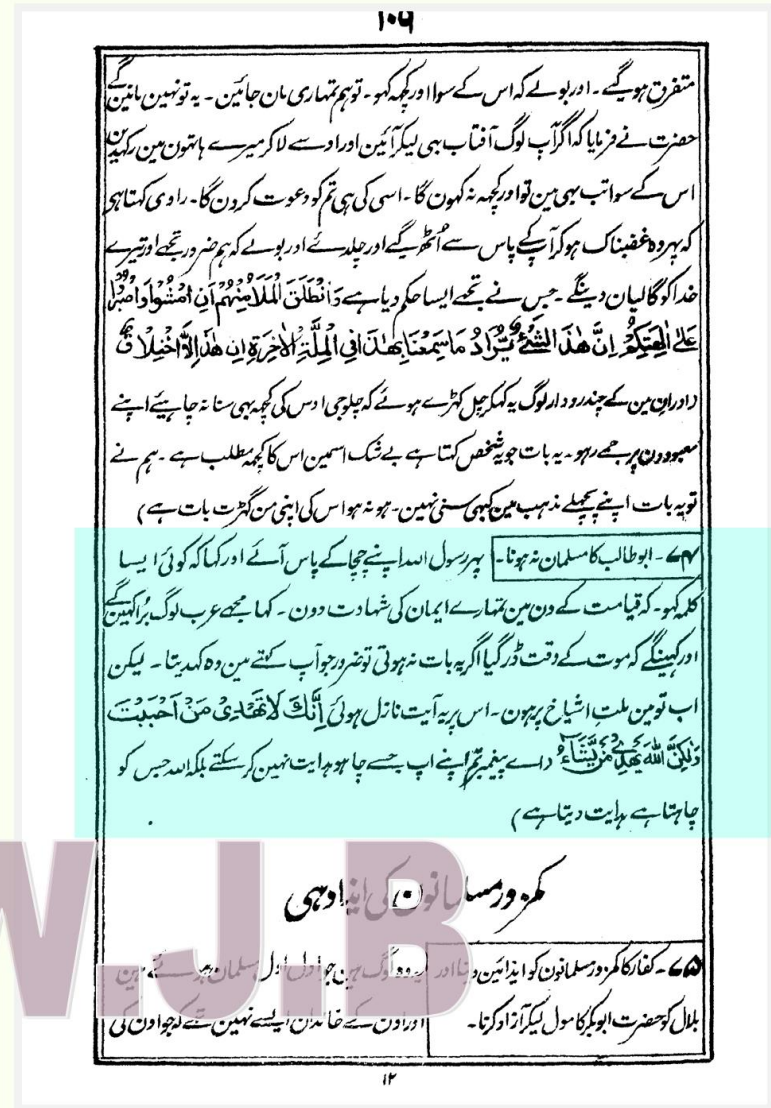 ۱۰۶
متفرق ہو گیے ۔ اور بولے کہ اس کے سوا اور کچہہ کہو ۔ تو ہم تمہاری مان جائین ۔ یہ تو نہین مانین گے
حضرت نے فرمایا کہ اگر آپ لوگ آفتاب بہی لیکر آئین اور اوسے لا کر میرے ہاتھون مین رکہدین
اس کے سوا تب بہی مین تو اور کچہہ نہ کہون گا ۔ اسی کی ہی تم کو دعوت کرون گا ۔ راوی کہتا ہی
کہ پہر وہ غضبناک ہو کر آپ کے پاس سے اُٹھ گیے اور چلدئے اور بولے کہ ہم ضرور تجھے اور تیرے
خدا کو گالیان دینگے ۔ جس نے تجھے ایسا حکم دیا ہے وَانْطَلَقَ الْمَلَأُ مِنْهُمْ اَنِ امْشُوْا وَاصْبِرُوْا
عَلٰى اٰلِهَتِكُمْ اِنَّ هٰذَا لَشَيْءٌ يُّرَادُ مَا سَمِعْنَا بِهٰذَا فِى الْمِلَّةِ الْاٰخِرَةِ اِنْ هٰذَا اِلَّا اخْتِلَاقٌ
(اور ان مین کے چند رودار لوگ یہ کہکر چل کہڑے ہوئے کہ چلو جی اوس کی کچہہ بہی سنا نہ چاہیئے اپنے
معبودون پر جمے رہو ۔ یہ بات جو یہ شخص کہتا ہے بے شک اسمین اس کا کچہہ مطلب ہے ۔ ہم نے
تو یہ بات اپنے پچھلے مذہب مین کبہی سنی نہین ۔ ہو نہ ہو اس کی اپنی من گھڑت بات ہے)
۷۴ ۔ ابو طالب کا مسلمان نہ ہونا ۔ پہر رسول اللہ اپنے چچا کے پاس آئے اور کہا کہ کوئی ایسا
کلمہ کہو ۔ کہ قیامت کے دن مین تمہارے ایمان کی شہادت دون ۔ کہا مجھے عرب لوگ بُرا کہین گے
اور کہینگے کہ موت کے وقت ڈر گیا اگر یہ بات نہ ہوتی تو ضرور جو آپ کہتے مین وہ کہدیتا ۔ لیکن
اب تو مین ملتِ اشیاخ پر ہون ۔ اس پر یہ آیت نازل ہوئی اِنَّكَ لَا تَهْدِىْ مَنْ اَحْبَبْتَ
وَلٰكِنَّ اللهَ يَهْدِىْ مَنْ يَّشَاءُ (اے پیغمبر تم اپنے آپ جسے چاہو ہدایت نہین کر سکتے بلکہ اللہ جس کو
چاہتا ہے ہدایت دیتا ہے)
کمزور مسلمانون کی ایذا دہی
۷۵ ۔ کفار کا کمزور مسلمانون کو ایذائین دینا اور
بلال کو حضرت ابوبکرؓ کا مول لیکر آزاد کرنا ۔
یہ وہ لوگ ہین جو اول اول مسلمان ہوئے ہین
اور اون کے خاندان ایسے نہین تھے کہ جو اون کی
۱۲
W.J.B